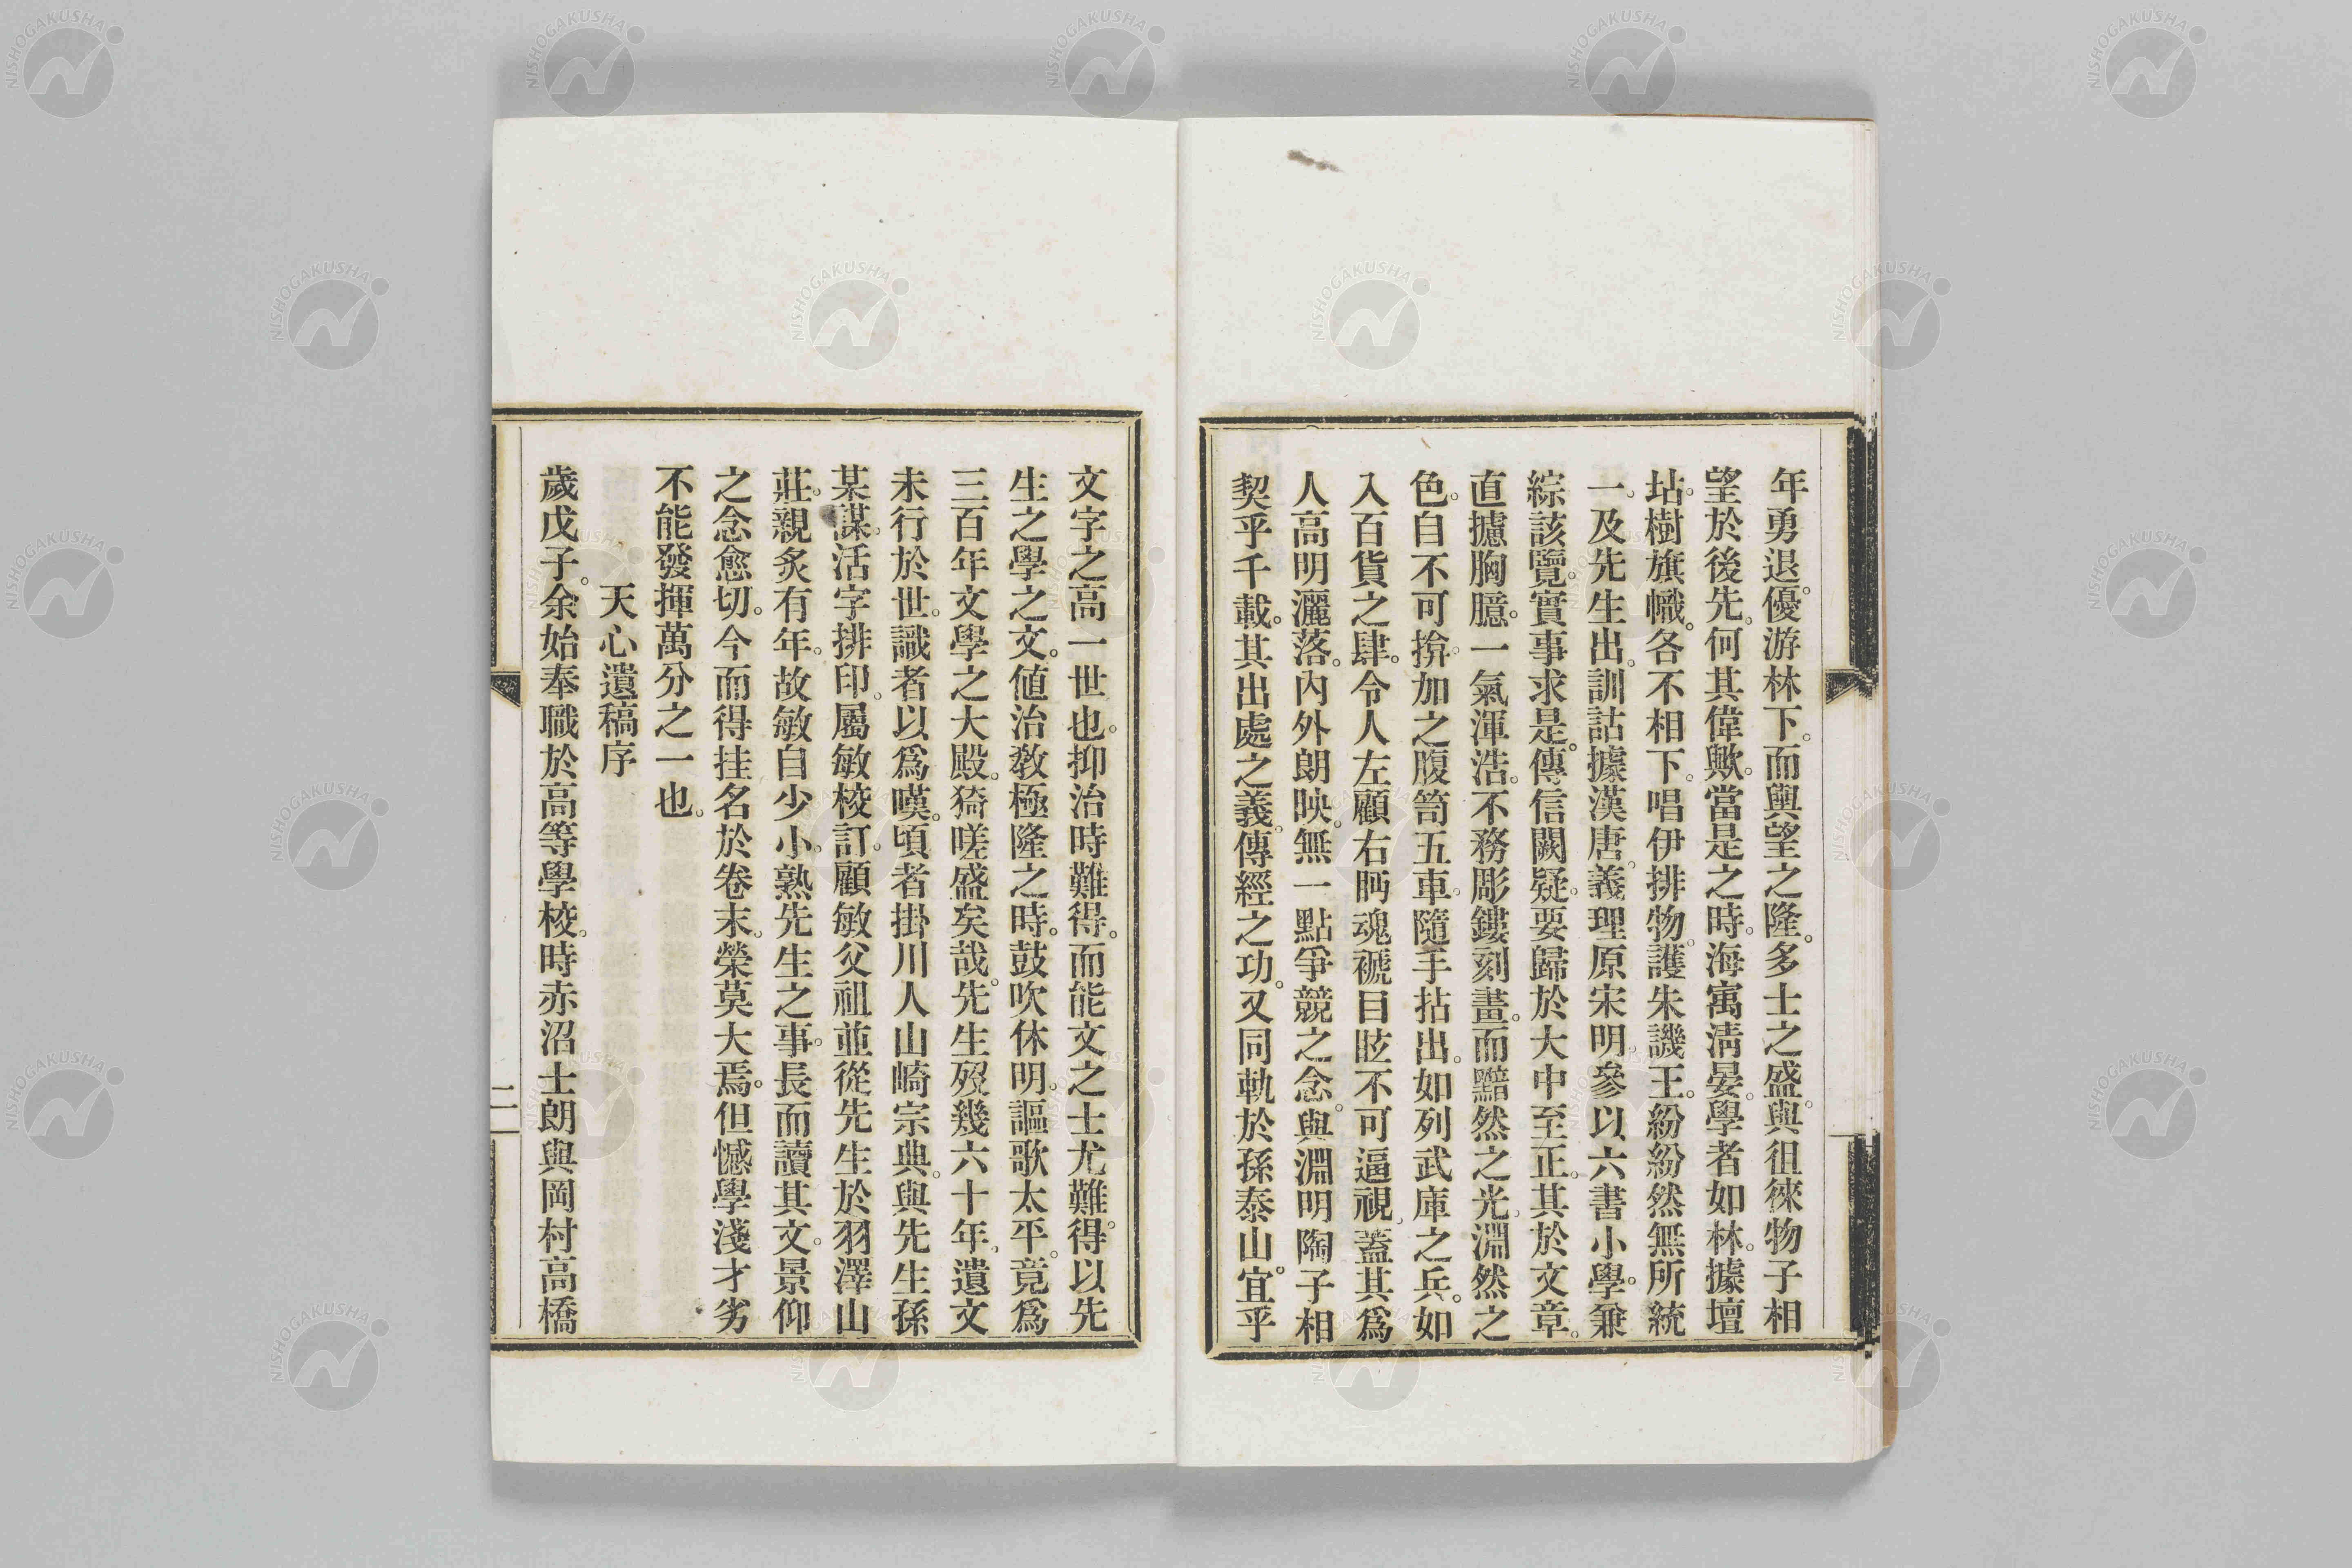 年勇退。優游林下。而與望之隆。多士之盛。與徂徠物子相
望於後先。何其偉歟。當是之時。海寓淸晏。學者如林。據壇
坫。樹旗幟。各不相下。唱伊排物。護朱譏王。紛紛然無所統
一。及先生出。訓詁據漢唐。義理原宋明。參以六書小學。兼
綜該覽。實事求是。傳信闕疑。要歸於大中至正。其於文章。
直攄胸臆。一氣渾浩。不務彫鏤刻畫。而黯然之光。淵然之
色。自不可揜。加之腹笥五車。隨手拈出。如列武庫之兵。如
入百貨之肆。令人左顧右眄魂褫目眩不可逼視。蓋其爲
人高明灑落。內外朗映。無一點爭競之念。與淵明陶子相
契乎千載。其出處之義。傳經之功。又同軌於孫泰山。宜乎
文字之高一世也。抑治時難得。而能文之士尤難得。以先
生之學之文。値治敎極隆之時。鼓吹休明。謳歌太平。竟爲
三百年文學之大殿。猗嗟盛矣哉。先生歿幾六十年。遺文
未行於世。識者以爲嘆。頃者掛川人山崎宗典。與先生孫
某謀。活字排印。屬敏校訂。顧敏父祖並從先生於羽澤山
莊。親炙有年。故敏自少小。熟先生之事。長而讀其文。景仰
之念愈切。今而得挂名於卷末。榮莫大焉。但憾學淺才劣
不能發揮萬分之一也。
天心遺稿序
歲戊子。余始奉職於高等學校。時赤沼士朗與岡村高橋
二
NISHOGAKUSHA